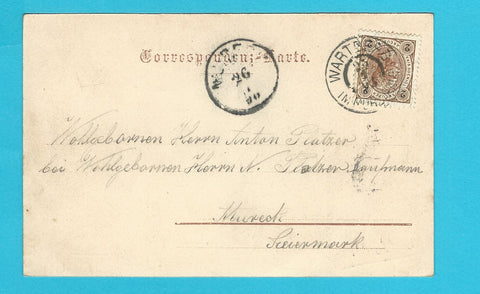 Correspondenz-Karte.
WARTB
IM MÜRZ
26
96
Wohlgebornen Herrn Anton Platzer
bei Wohlgebornen Herrn N. Platzer Kaufmann
Mureck
Steiermark